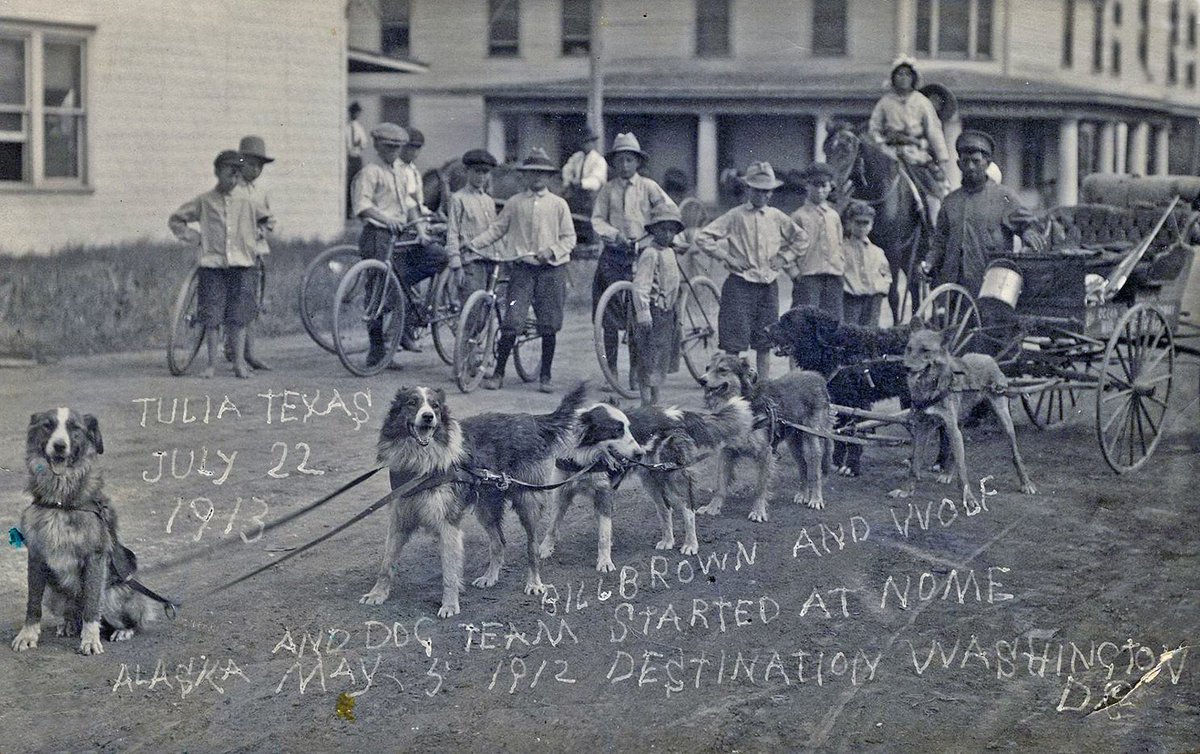 TULIA TEXAS
JULY 22
1913
BILL BROWN AND WOLF
AND DOG TEAM STARTED AT NOME
ALASKA MAY 5 1912 DESTINATION WASHINGTON
D.C.